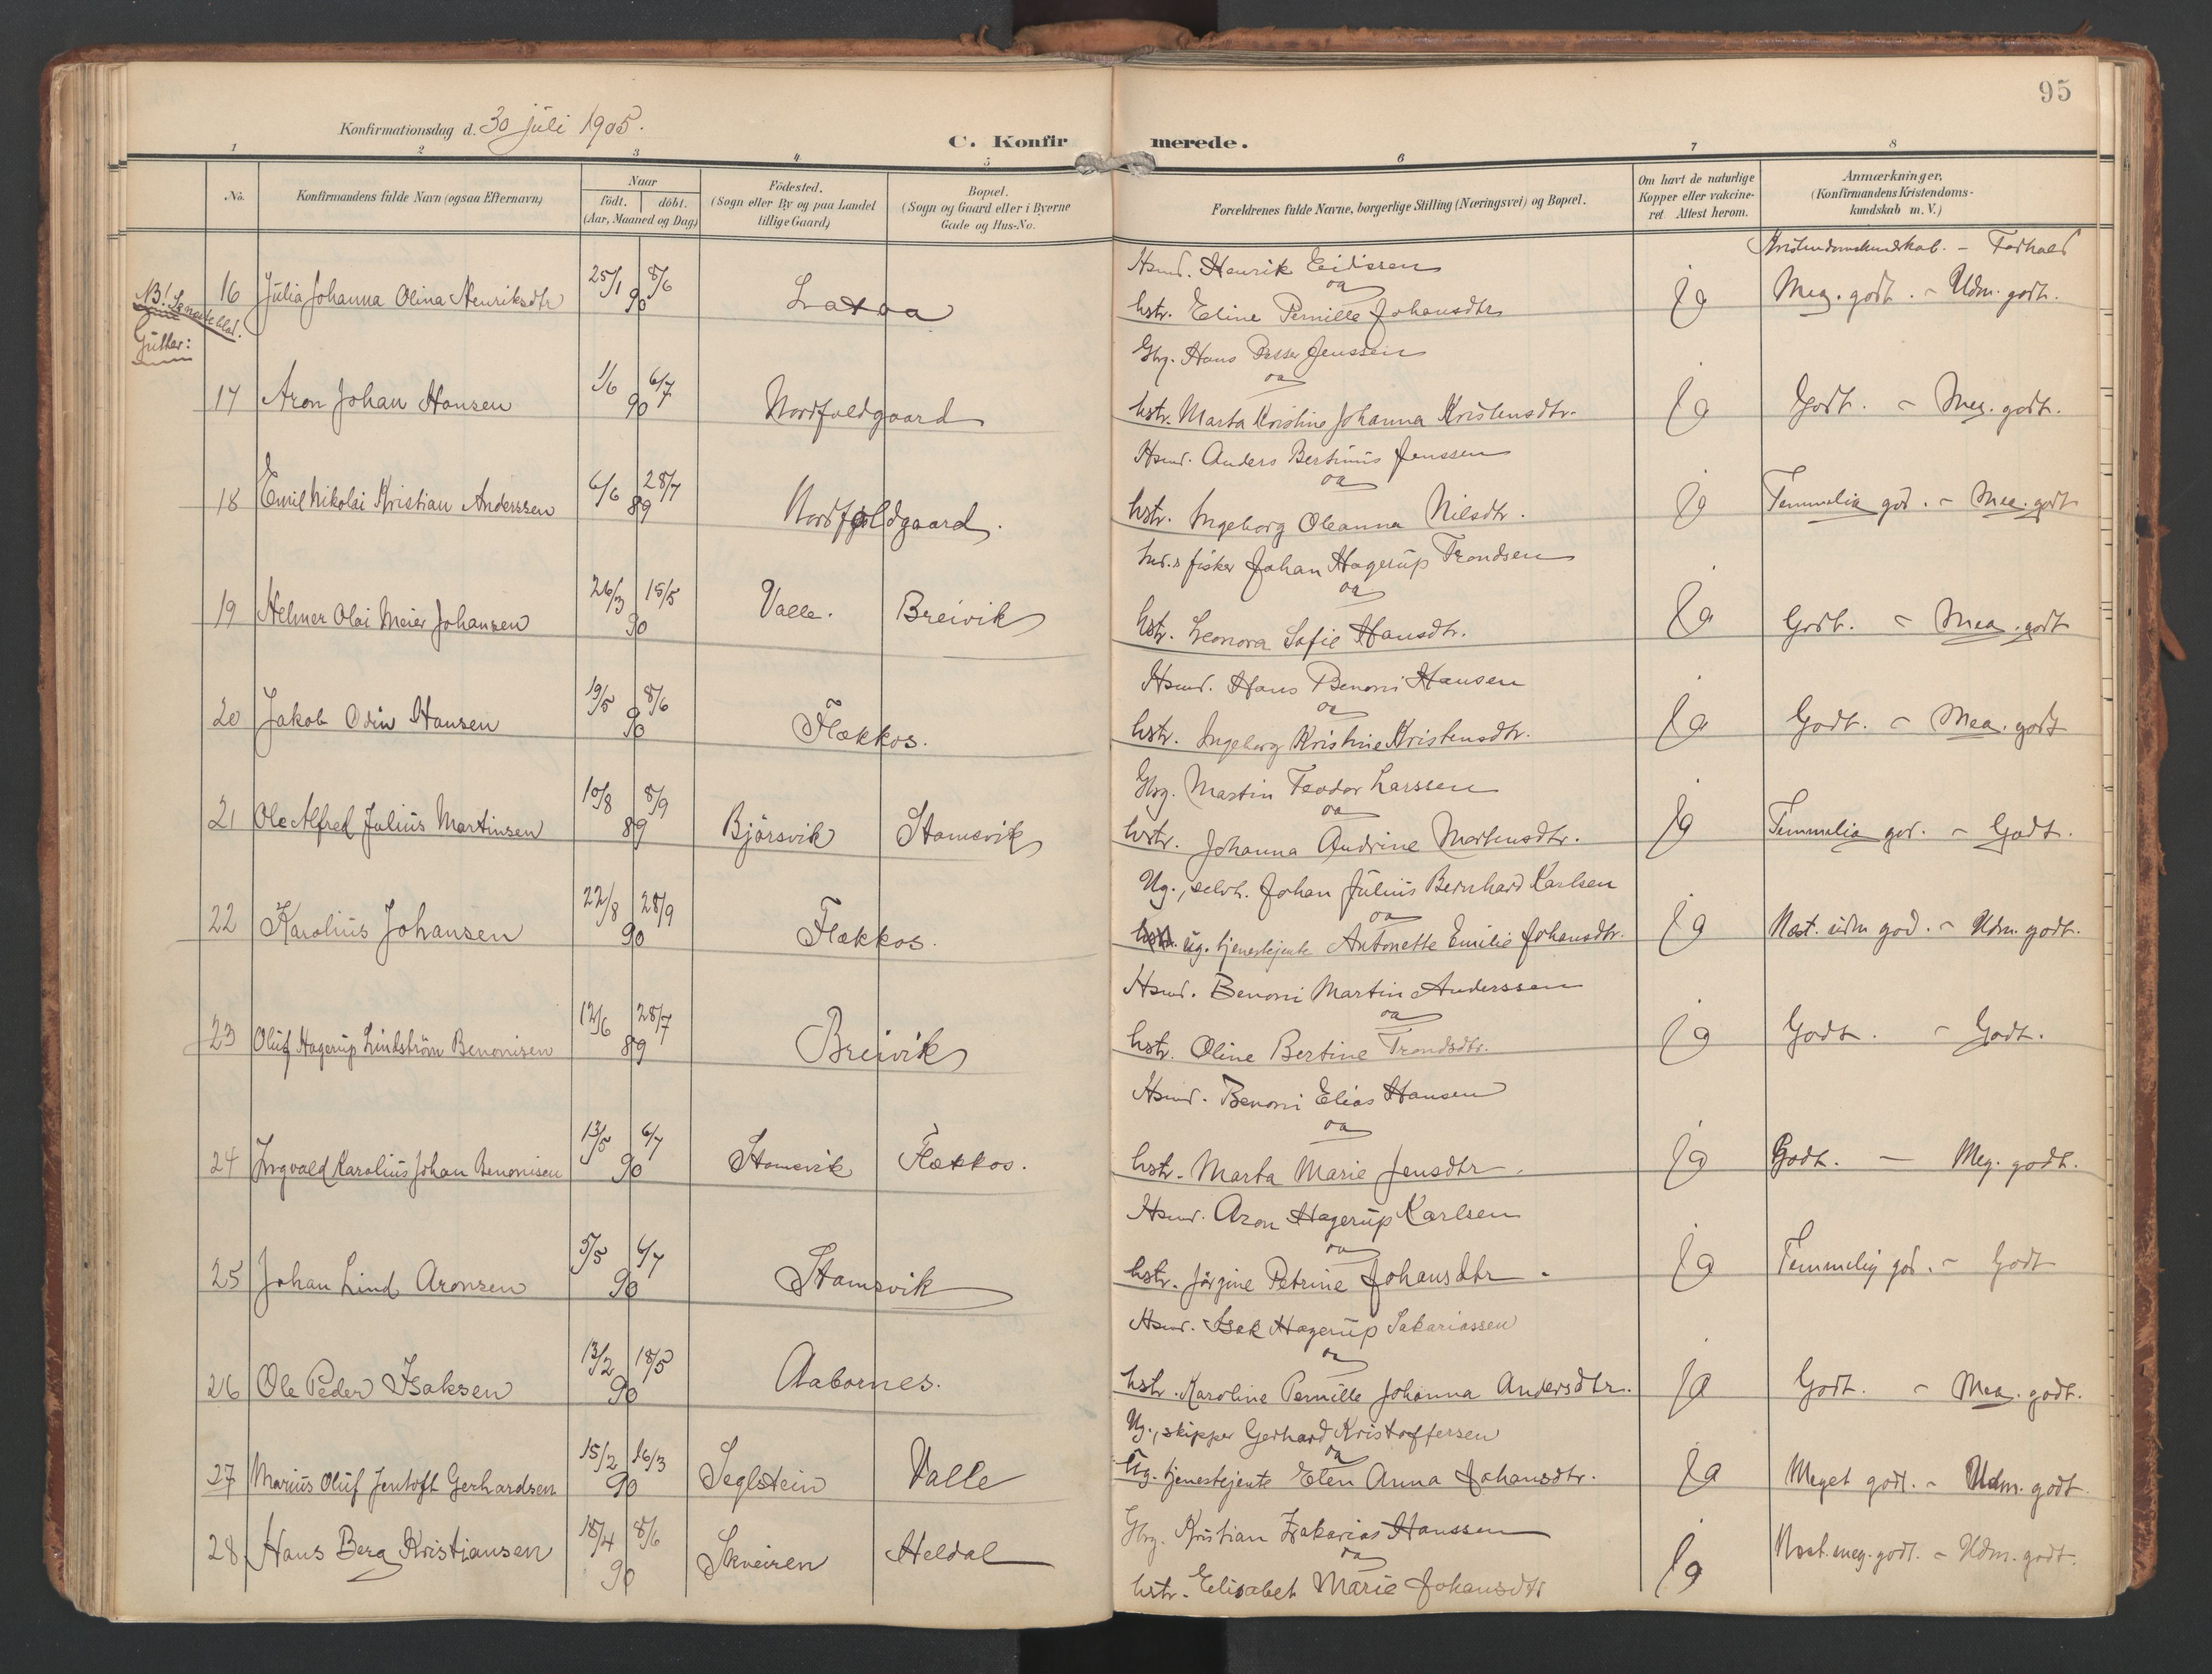 95
Konfirmationsdag d. 30 juli 1905.
C. Konfirmerede.
1 2 3 4 5 6 7 8
No.
Konfirmandens fulde Navn (ogsaa Efternavn)
Naar
födt. döbt.
(Aar, Maaned og Dag)
Födested.
(Sogn eller By og paa Landet
tillige Gaard)
Bopæl.
(Sogn og Gaard eller i Byerne
Gade og Hus-No.
Forældrenes fulde Navne, borgerlige Stilling (Næringsvei) og Bopæl.
Om havt de naturlige
Kopper eller vakcine-
ret. Attest herom.
Anmærkninger.
(Konfirmandens Kristendoms-
kundskab m. V.)
Kristendomskundskab. – Forhold
NB!
Gutter:
16 Julia Johanna Olina Henriksdtr 25/1 8/6 90 Laxaa
Hsmd. Henrik Eidissen
og
hstr. Eline Pernille Johansdtr
ja Meg. godt. – Udm. godt.
17 Aron Johan Hansen 1/6 6/7 90 Nordfoldgaard
Gbg. Hans Peter Jenssen
og
hstr. Marta Kristine Johanna Kristensdtr.
ja Godt. – Meg. godt.
18 Emil Nikolai Kristian Anderssen 6/6 28/7 89 Nordfoldgaard.
Hsmd. Anders Bertinus Jenssen
og
hstr. Ingeborg Oleanna Nilsdtr.
ja Temmelig god. – Meg. godt
19 Helmer Olai Meier Johansen 26/3 15/5 90 Valle. Breivik
Ind.s fisker Johan Hagerup Trondsen
og
hstr. Leonora Sofie Hansdtr.
ja Godt. – Meg. godt
20 Jakob Odin Hansen 19/5 8/6 90 Flækkos.
Hsmd. Hans Benoni Hansen
og
hstr. Ingeborg Kristine Kristensdtr.
ja Godt. – Meg. godt
21 Ole Alfred Julius Martinsen 10/8 8/9 89 Björsvik Stamsvik
Gbg. Martin Teodor Larssen
og
hstr. Johanna Andrine Mortensdtr.
ja Temmelig god. – Godt.
22 Karolius Johansen 22/8 28/9 90 Flækkos.
Ug., selvh. Johan Julius Bernhard Karlsen
og
ug. tjenestejente Antonette Emilie Johansdtr.
ja Næst. udm god. – Udm. godt.
23 Oluf Hagerup Lindström Benonisen 12/6 28/7 89 Breivik
Hsmd. Benoni Martin Anderssen
og
hstr. Oline Bertine Trondsdtr.
ja Godt. – Godt.
24 Ingvald Karolius Johan Benonisen 13/5 6/7 90 Stamsvik Flækkos.
Hsmd. Benoni Elias Hansen
og
hstr. Marta Marie Jensdtr.
ja Godt. – Meg. godt.
25 Johan Lind Aronsen 5/5 6/7 90 Stamsvik
Hsmd. Aron Hagerup Karlsen
og
hstr. Jörgine Petrine Johansdtr.
ja Temmelig god. – Godt
26 Ole Peder Isaksen 13/2 18/5 90 Aabornes.
Hsmd. Isak Hagerup Sakariassen
og
hstr. Karoline Pernille Johanna Andersdtr.
ja Godt. – Meg. godt.
27 Marius Oluf Jentoft Gerhardsen 15/2 16/3 90 Seglstein Valle
Ug., skipper Gerhard Kristoffersen
og
Ug. tjenestejente Elen Anna Johansdtr.
ja Meget godt. – Udm. godt.
28 Hans Berg Kristiansen 18/4 8/6 90 Skveiren Heldal
Gbg. Kristian Zakarias Hanssen
og
hstr. Elisabet Marie Johansdtr
ja Næst. meg. godt. – Udm. godt.